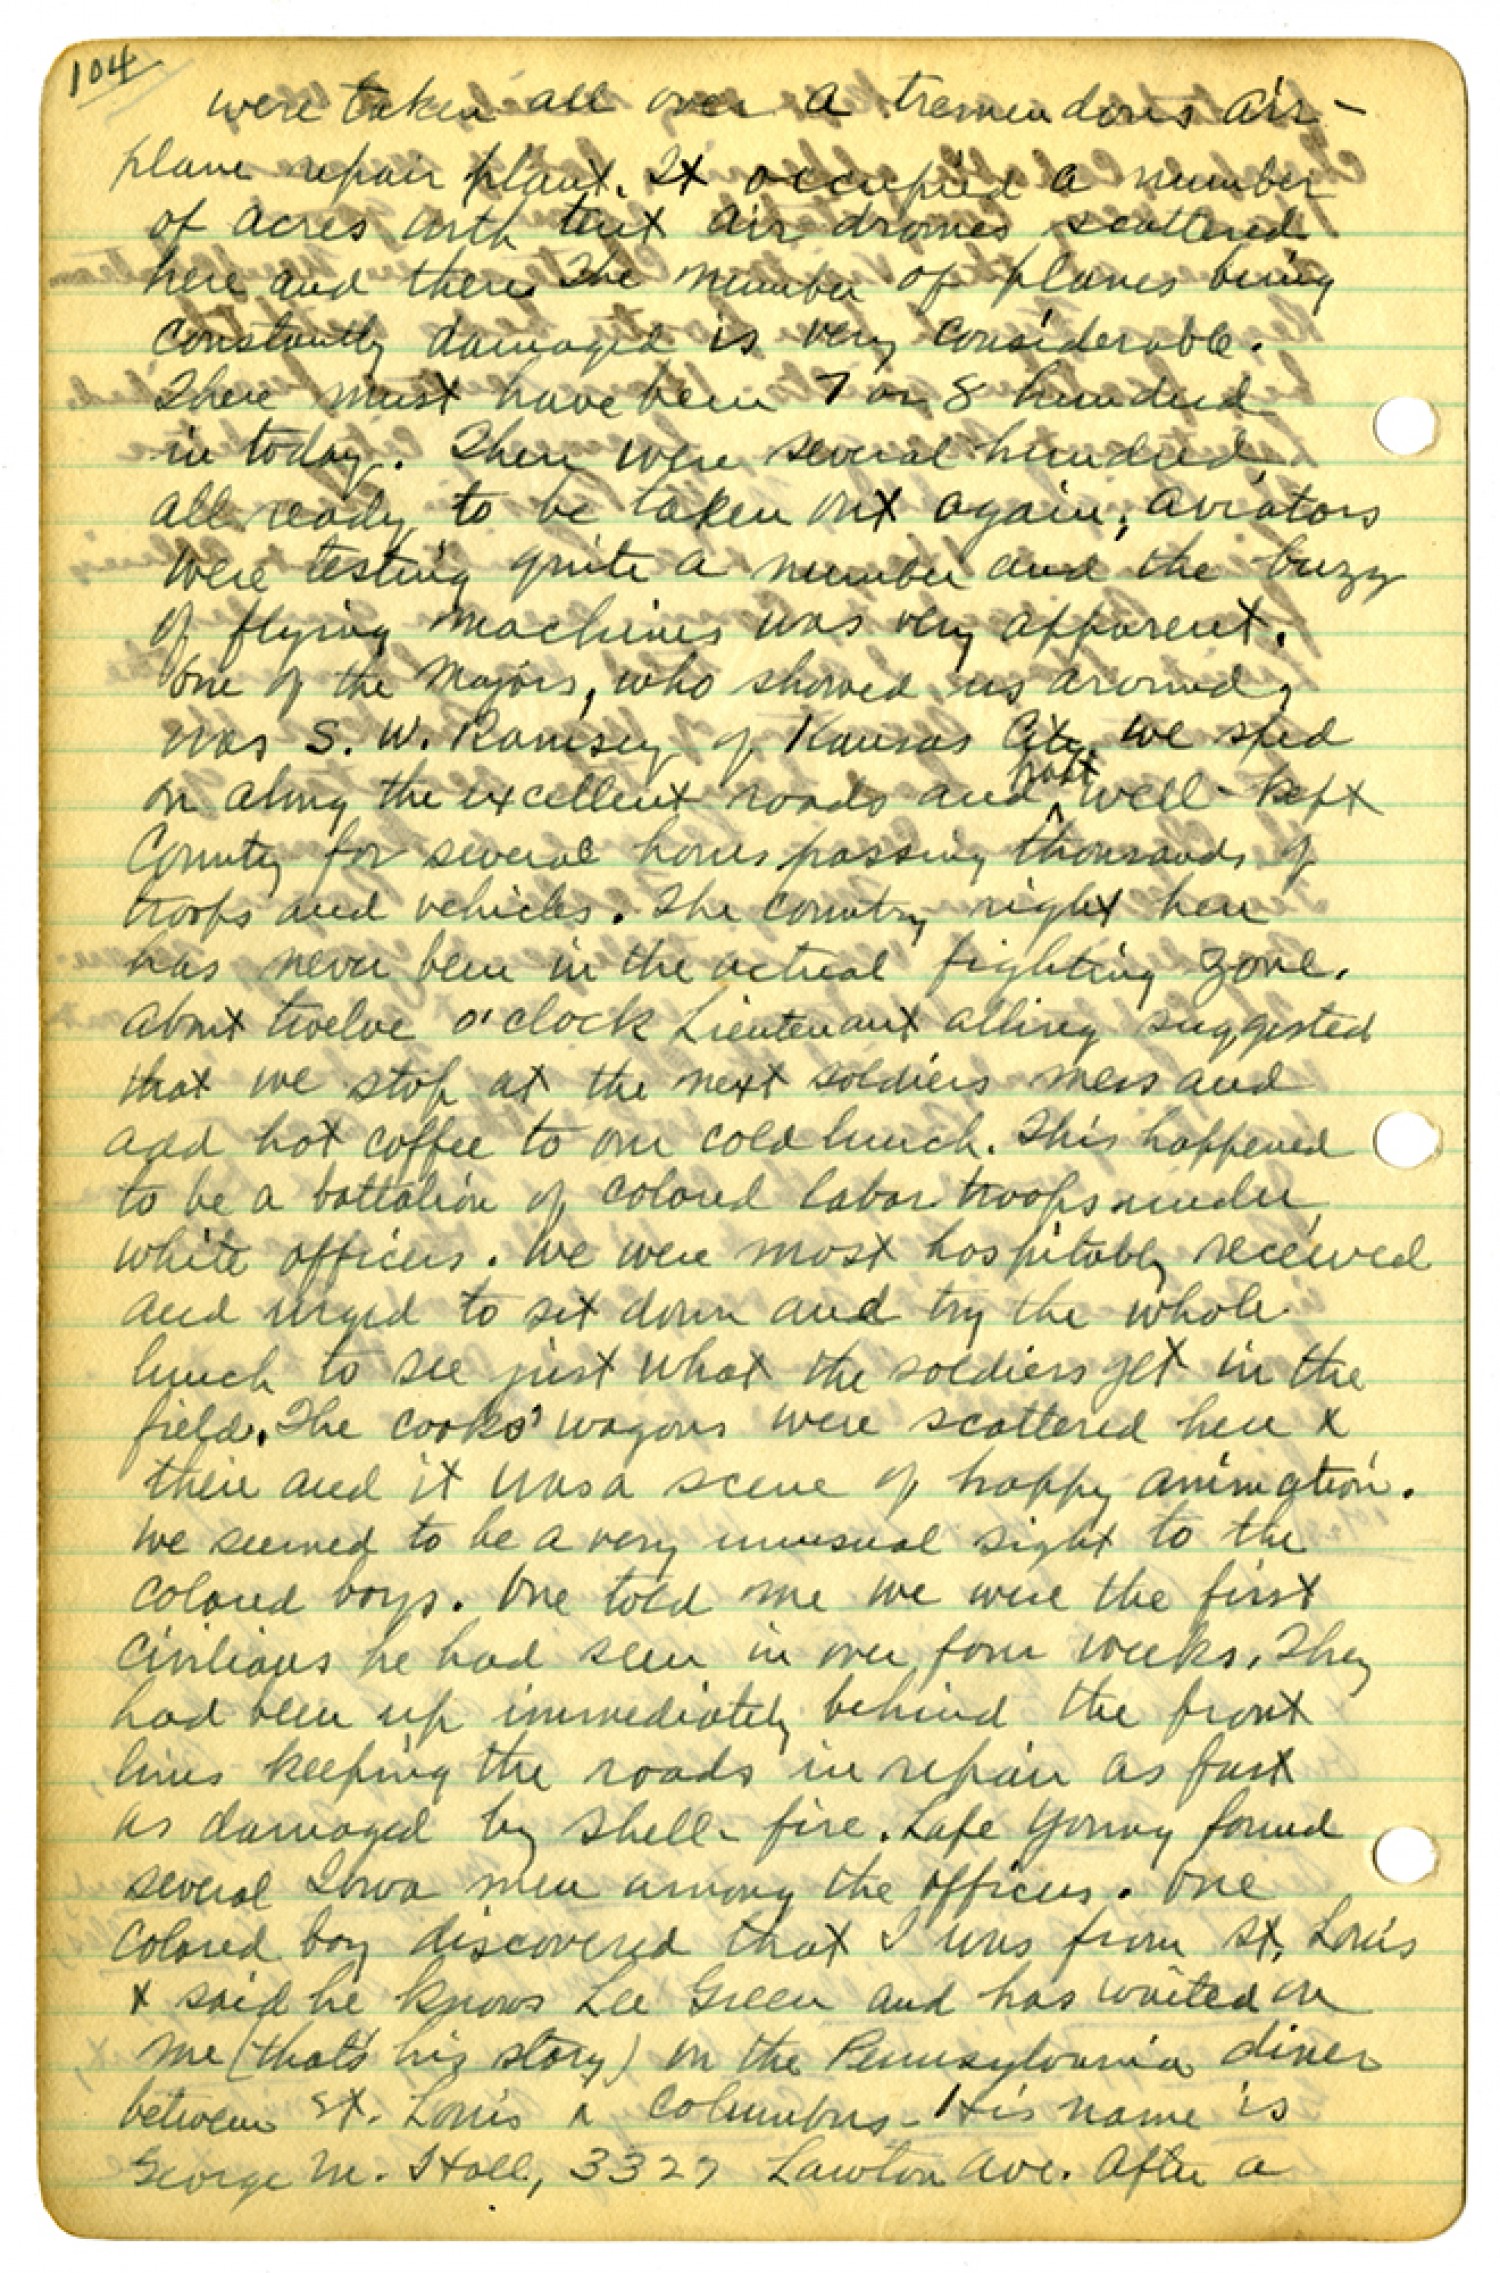 104
were taken all over a tremendous air-
plane repair plant. It occupied a number
of acres with tent air dromes scattered
here and there. The number of planes being
constantly damaged is very considerable.
There must have been 7 or 8 hundred
in today. There were several hundred
all ready to be taken out again; aviators
were testing quite a number and the buzz
of flying machines was very apparent.
One of the Majors, who showed us around,
was S. W. Ramsey of Kansas City. We sped
on along the excellent roads and most well-kept
County for several hours passing thousands of
troops and vehicles. The country right here
has never been in the actual fighting zone.
About twelve o'clock Lieutenant Alling suggested
that we stop at the next soldiers mess and
add hot coffee to our cold lunch. This happened
to be a battalion of colored labor troops under
white officers. We were most hospitably received
and urged to sit down and try the whole
lunch to see just what the soldiers get in the
field. The cooks' wagons were scattered here &
there and it was a scene of happy animation.
We seemed to be a very unusual sight to the
colored boys. One told me we were the first
civilians he had seen in over four weeks. They
had been up immediately behind the front
lines keeping the roads in repair as fast
as damaged by shell-fire. Lafe Young found
several Iowa men among the officers. One
colored boy discovered that I was from St. Louis
& said he knows Lee Green and has waited on
me (that's his story) on the Pennsylvania diner
between St. Louis & Columbus - His name is
George M. Hall, 3327 Lawton Ave. After a